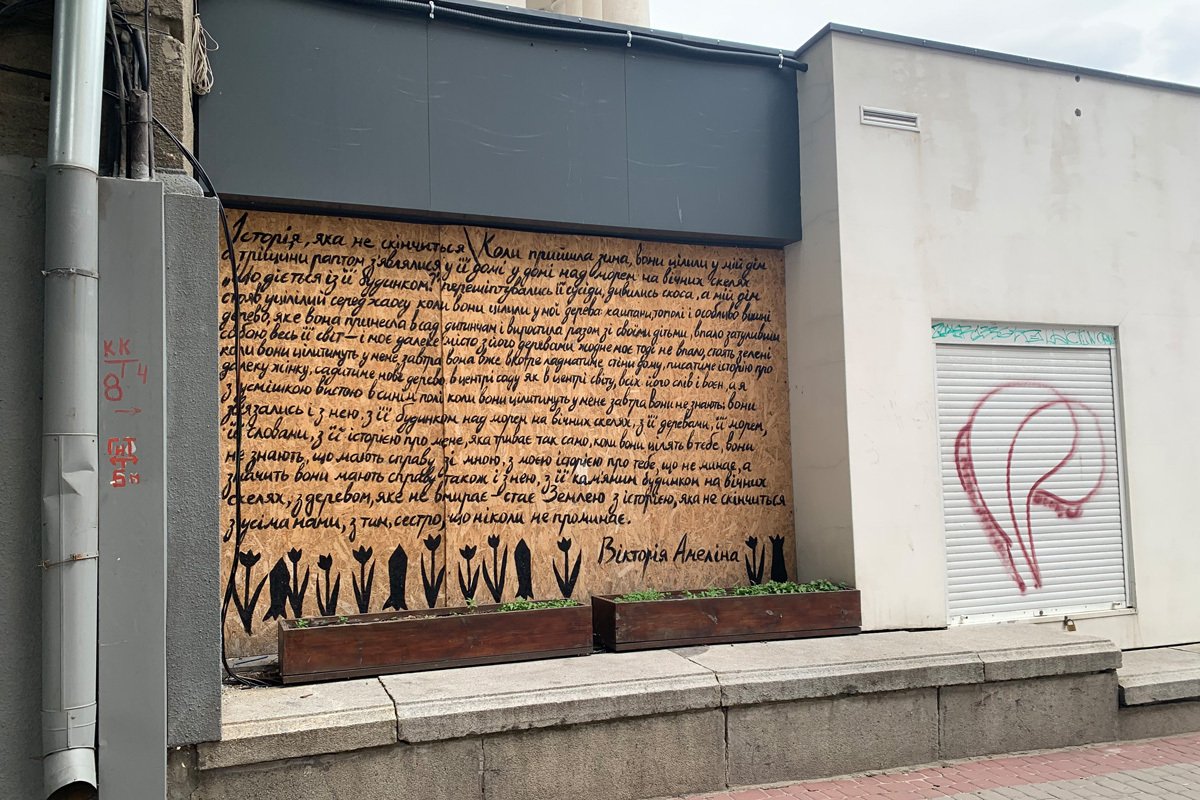 Історія, яка не скінчиться \ Коли прийшла зима, вони цілили у мій дім
тріщини раптом з'являлися у її домі у домі над морем на вічних скелях
"Що діється із її будинком?" перешіптувались її сусіди, дивились скоса, а мій дім
стояв уцілілий серед хаосу коли вони цілили у мої дерева каштани, тополі і особливо вишні
дерево, яке вона принесла в сад дитинчам і виростила разом зі своїми дітьми, впало затуливши
собою весь її світ — і моє далеке місто з його деревами жодне моє тоді не впало, стоять зелені
коли вони цілитимуть у мене завтра вона вже вкотре ладнатиме стіни дому, писатиме історію про
далеку жінку, садитиме нове дерево в центрі саду як в центрі світу, всіх його слів і воєн, а я
з усмішкою вистою в синім полі коли вони цілитимуть у мене завтра вони не знають: вони
зв'язались і з нею, з її будинком над морем на вічних скелях, з її деревами, її морем,
її словами, з її історією про мене, яка триває так само, коли вони цілять в тебе, вони
не знають, що мають справу зі мною, з моєю історією про тебе, що не минає, а
значить вони мають справу також і з нею, з її кам'яним будинком на вічних
скелях, з деревом, яке не вмирає — стає Землею з історією, яка не скінчиться
з усіма нами, з тим, сестро, що ніколи не проминає.
Вікторія Амеліна
КК
Т4
8
ГТ